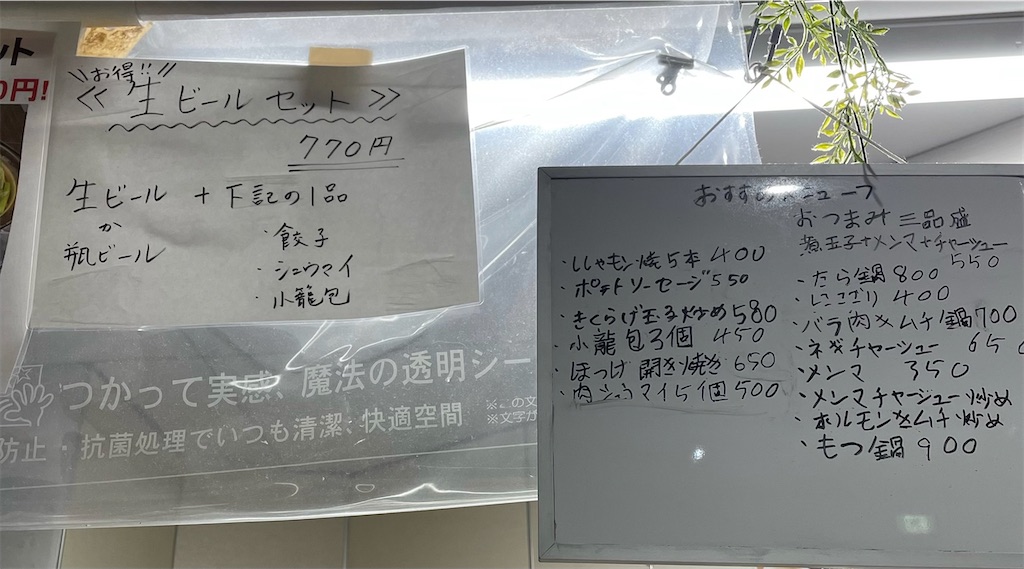 ット
0円!
お得!!
≪生ビールセット≫
770円
生ビール + 下記の1品
か
瓶ビール
・餃子
・シュウマイ
・小籠包
つかって実感、魔法の透明シー
防止・抗菌処理でいつも清潔、快適空間
※この文
※文字が
おすすめメニュー
・ししゃもン焼5本 400
・ポテトソーセージ 550
・きくらげ玉子炒め 580
・小籠包3個 450
・ほっけ開き焼き 650
・肉シュウマイ5個 500
おつまみ三品盛
煮玉子+メンマ+チャーシュー
550
・たら鍋 800
・にこごり 400
・バラ肉キムチ鍋 700
・ネギチャーシュー 650
・メンマ 350
・メンマチャーシュー炒め
・ホルモンキムチ炒め
・もつ鍋 900